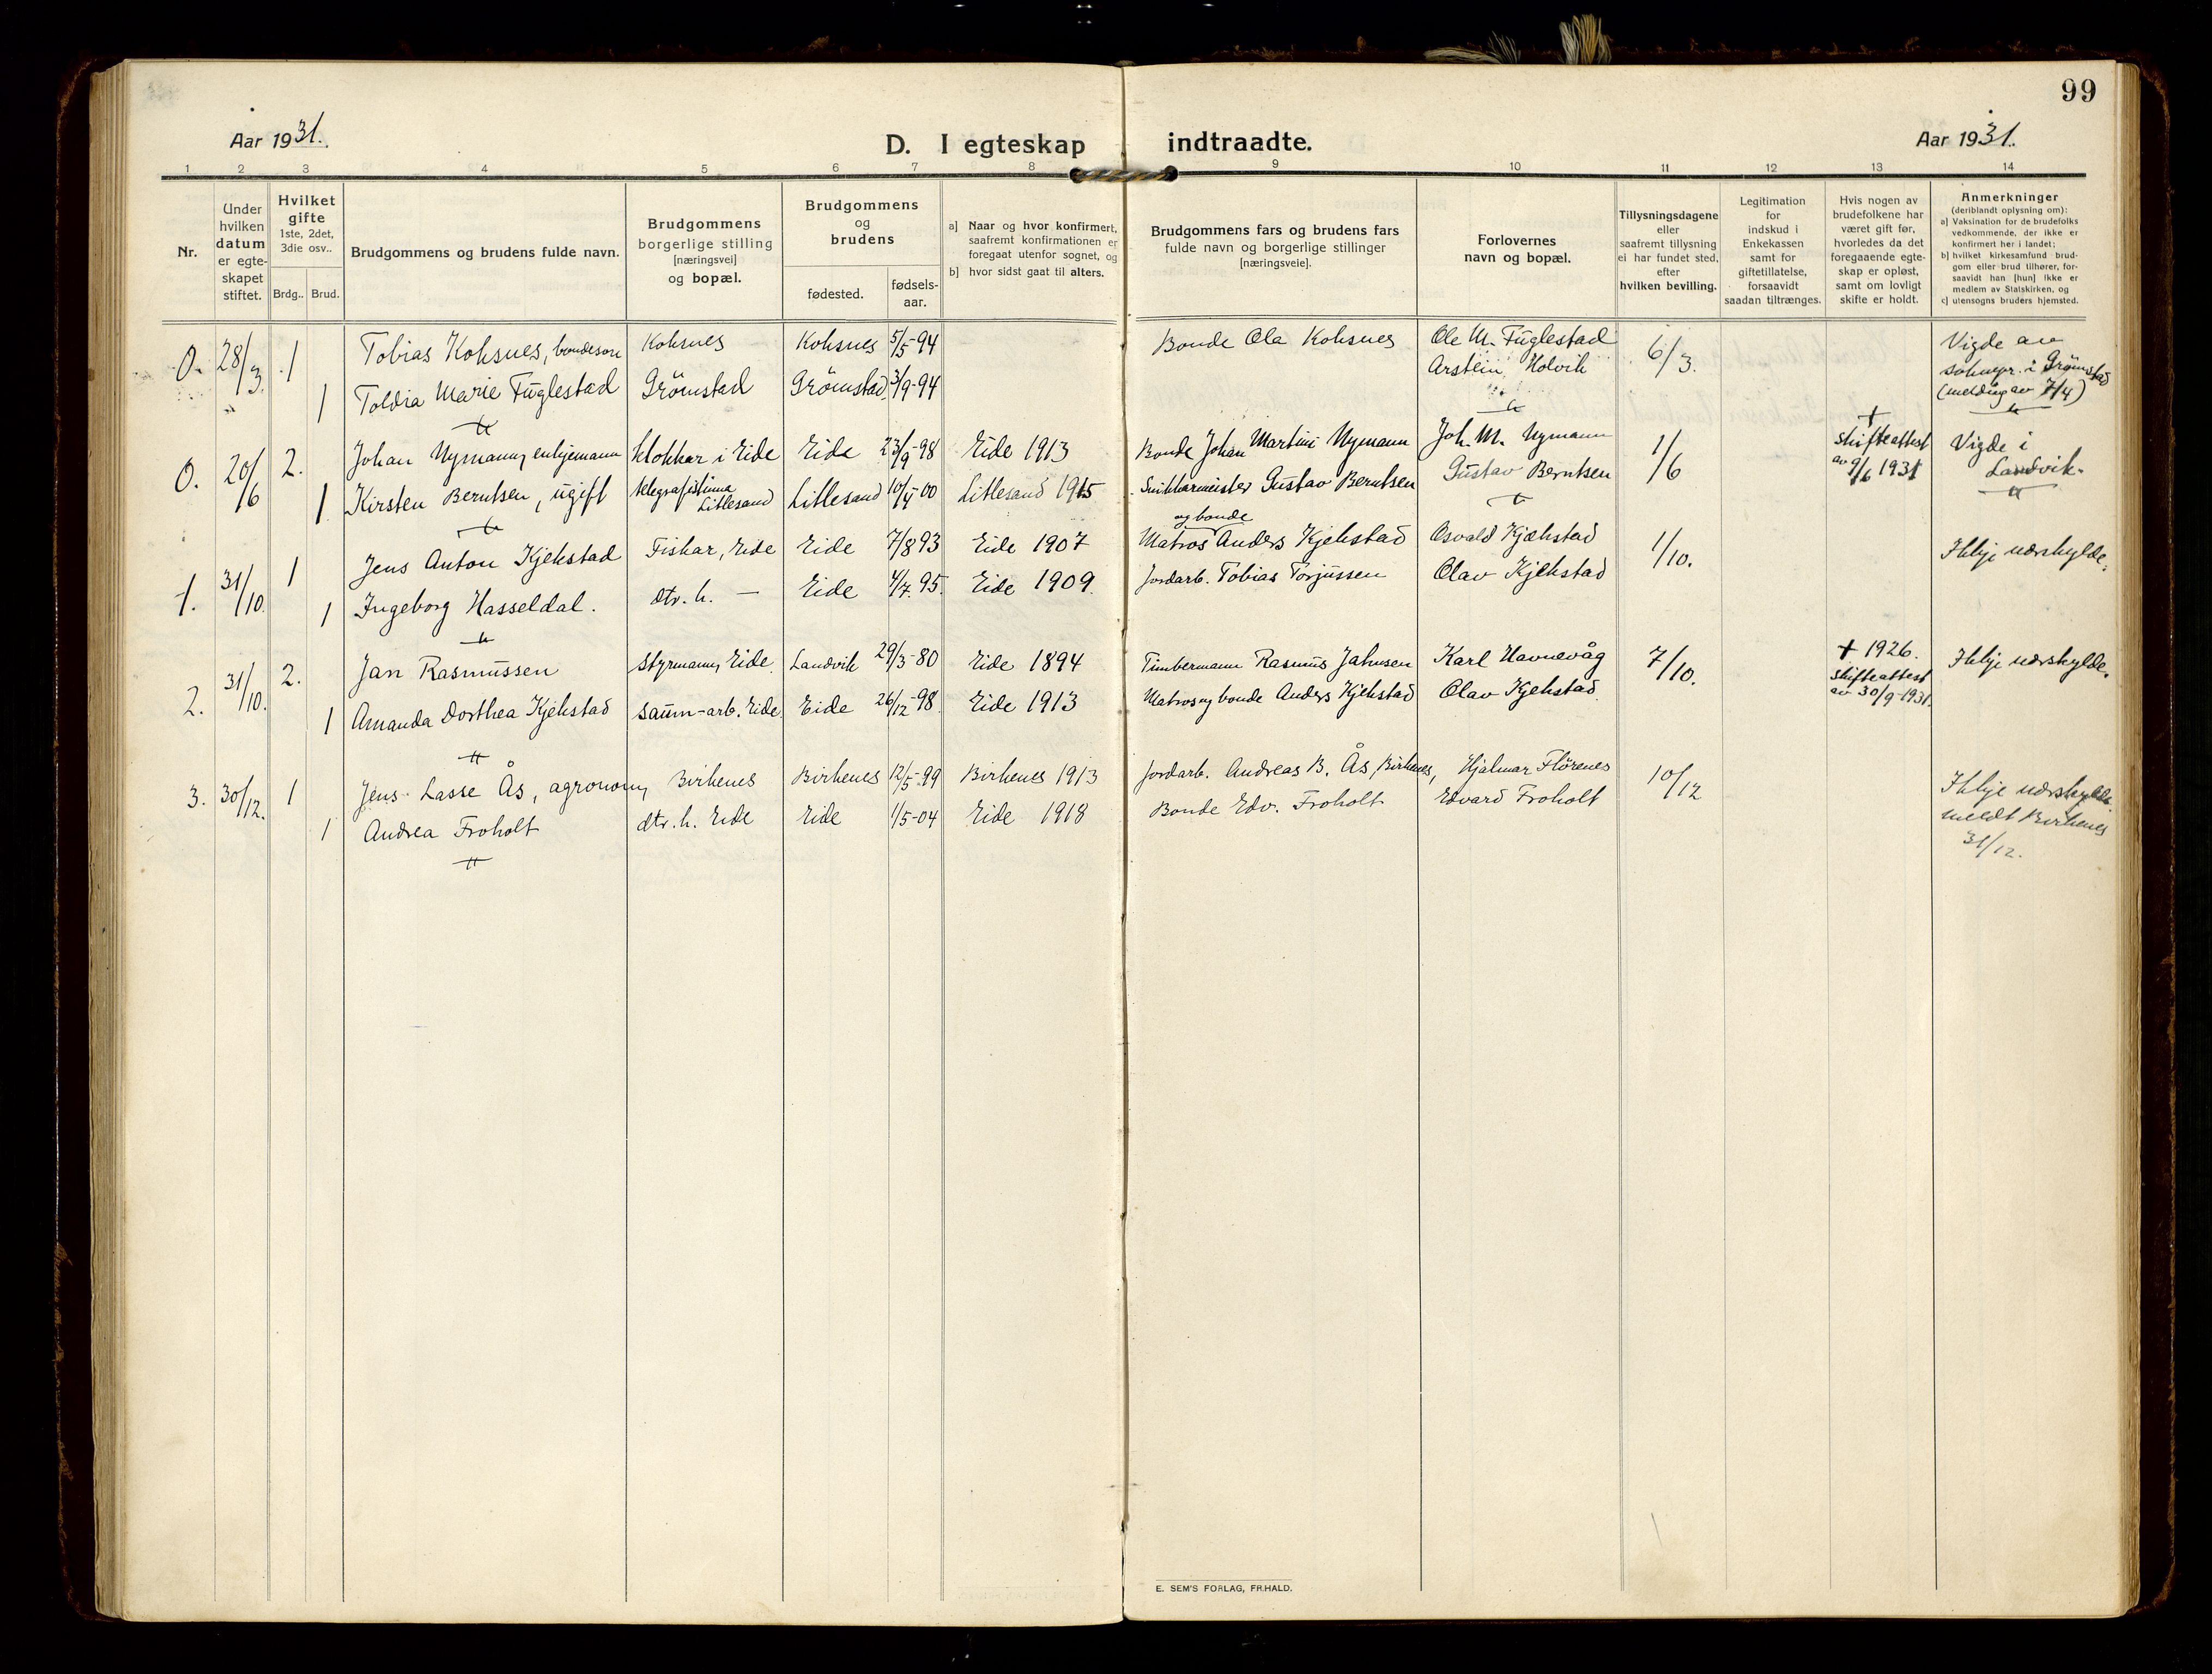 99
Aar 1931.
D. I egteskap indtraadte.
Aar 1931.
1 2 3 4 5 6 7 8 9 10 11 12 13 14
Nr.
Under
hvilken
datum
er egte-
skapet
stiftet.
Hvilket
gifte
1ste, 2det,
3die osv..
Brdg.. Brud.
Brudgommens og brudens fulde navn.
Brudgommens
borgerlige stilling
[næringsvei]
og bopæl.
Brudgommens
og
brudens
fødested.
fødsels-
aar.
a] Naar og hvor konfirmert,
saafremt konfirmationen er
foregaat utenfor sognet, og
b] hvor sidst gaat til alters.
Brudgommens fars og brudens fars
fulde navn og borgerlige stillinger
[næringsveie].
Forlovernes
navn og bopæl.
Tillysningsdagene
eller
saafremt tillysning
ei har fundet sted,
efter
hvilken bevilling.
Legitimation
for
indskud i
Enkekassen
samt for
giftetillatelse,
forsaavidt
saadan tiltrænges.
Hvis nogen av
brudefolkene har
været gift før,
hvorledes da det
foregaaende egte-
skap er opløst,
samt om lovligt
skifte er holdt.
Anmerkninger
(deriblandt oplysning om):
a] Vaksination for de brudefolks
vedkommende, der ikke er
konfirmert her i landet;
b] hvilket kirkesamfund brud-
gom eller brud tilhører, for-
saavidt han [hun] ikke er
medlem av Statskirken, og
c] utensogns bruders hjemsted.
0. 28/3. 1 Tobias Koksnes, bondeson Koksnes Koksnes 5/5-94 Bonde Ola Koksnes Ole M. Fuglestad 6/3.
1 Toldia Marie Fuglestad Grömstad Grömstad 3/9-94 Arstein Holvik
Vigde av
soknepr. i Grömstad
(melding av 7/4)
0. 20/6 2. Johan Nymann, enkjemann klokkar i Eide Eide 23/9-98 Eide 1913 Bonde Johan Martini Nymann Joh. M. Nymann 1/6
1 Kirsten Berntsen, ugift telegrafistinna
Lillesand Lillesand 10/4-00 Lillesand 1915 Snikkarmeister Gustav Berntsen Gustav Berntsen
+
skifteattest
av 9/6 1931
Vigde i
Landvik.
1. 31/10. 1 Jens Anton Kjekstad Fiskar, Eide Eide 7/8 93 Eide 1907 Matros og bonde Anders Kjekstad Osvald Kjekstad 1/10. Ikkje uærskylde.
1 Ingeborg Hasseldal. dtr. h. — Eide 4/7. 95. Eide 1909. Jordarb. Tobias Torjussen Olav Kjekstad
2. 31/10. 2. Jan Rasmussen Styrmann, Eide Landvik 29/3-80 Eide 1894 Timbermann Rasmus Jahnsen Karl Havnevåg 7/10.
1 Amanda Dorthea Kjekstad saum-arb. Eide Eide 26/12-98. Eide 1913 Matros og bonde Anders Kjekstad Olav Kjekstad.
+ 1926.
skifteattest
av 30/9-1931.
Ikkje uærskylde.
3. 30/12. 1 Jens Lasse Ås, agronom, Birkenes Birkenes 12/5-99 Birkenes 1913 Jordarb. Andreas B. Ås, Birkenes, Hjalmar Flörenes 10/12
1 Andrea Froholt dtr. h. Eide Eide 1/5-04 Eide 1918 Bonde Edv. Froholt Edvard Froholt
Ikkje uærskylde
meldt Birkenes
31/12.
E. SEM'S FORLAG, FR.HALD.